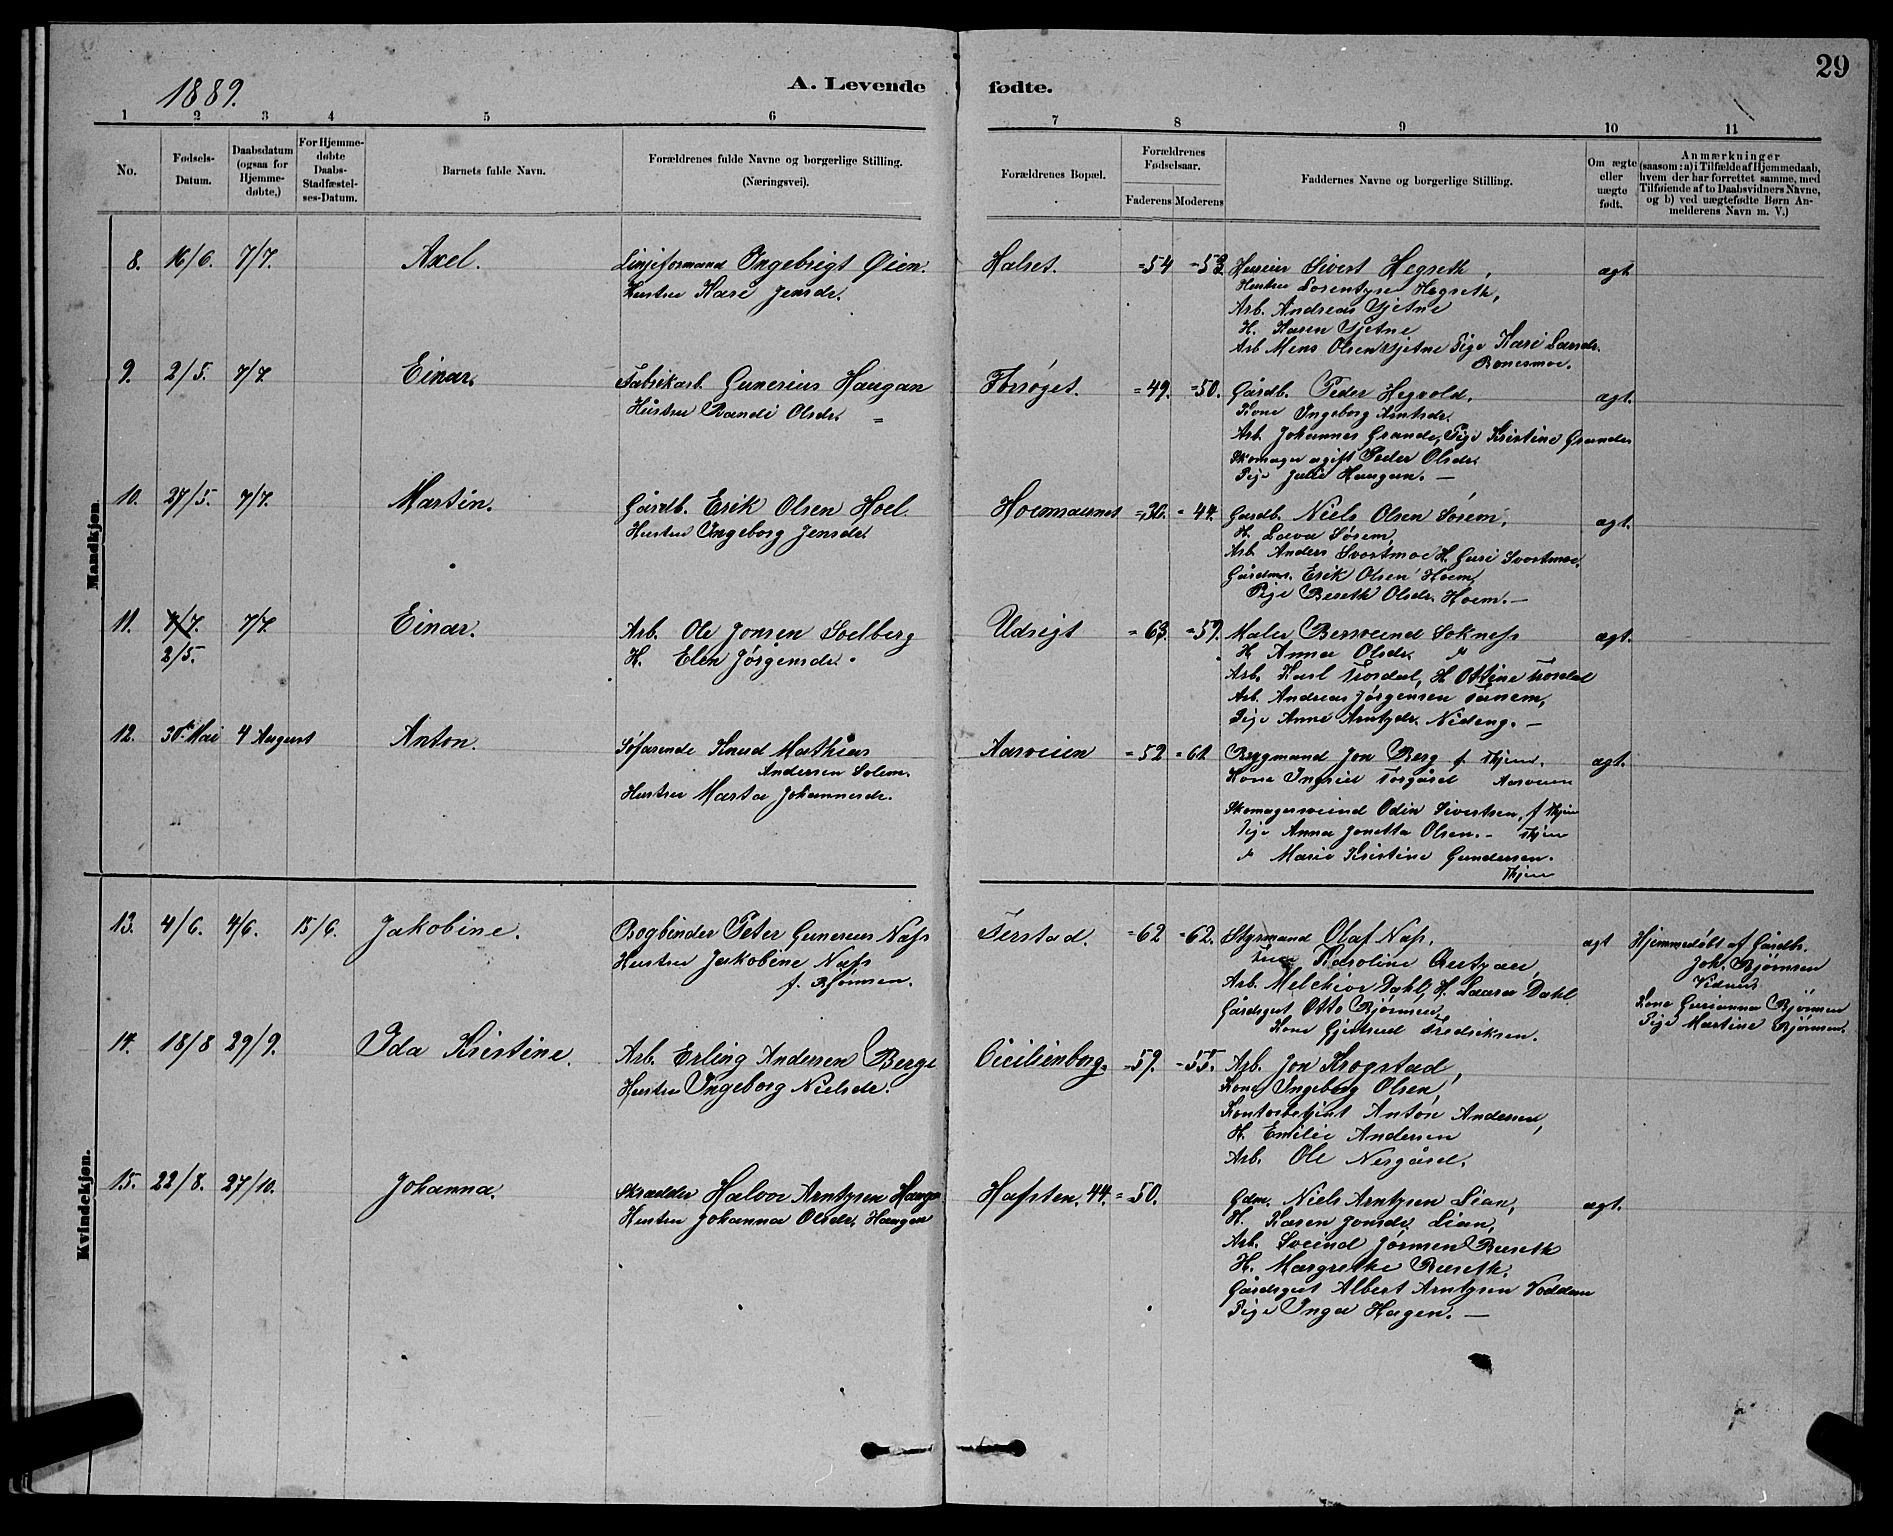 29
1889.
A. Levende fødte.
1 2 3 4 5 6 7 8 9 10 11
No.
Fødsels-Datum.
Daabsdatum (ogsaa for Hjemme-døbte,)
For Hjemme-døbte Daabs-Stadfæstel-ses-Datum.
Barnets fulde Navn.
Forældrenes fulde Navne og borgerlige Stilling.
(Næringsvei).
Forældrenes Bopæl.
Forældrenes Fødselsaar.
Faderens Moderens
Faddernes Navne og borgerlige Stilling.
Om ægte eller uægte født.
Anmærkninger
(saasom: a) i Tilfælde af Hjemmedaab, hvem der har forrettet samme, med Tilføiende af to Daabsvidners Navne, og b) ved uægtefødte Børn An-melderens Navn m. V.)
Mandkjøn.
8. 16/6. 7/7. Axel.
Linjeformand Ingebrigt Øien.
Hustru Kari Jensdr.
Halset. =54 =53.
Huseier Sivert Hegseth,
Hustru Lorentyne Hegseth,
Arb. Andreas Gjetne
H. Karen Gjetne
Arb. Mons Olsen Gjetne Pige Kari Larsdr.
Ronesmoe.
ægt
9. 2/5. 7/7. Einar.
Fabrikarb. Gunerius Haugan
Hustru Randi Olsdr. "
Forsøget. =49. =50.
Gårdb. Peder Hegvold.
Kone Ingeborg Arntsdr.
Arb. Johannes Grande, Pige Kristine Grande
Skomager ugift Peder Olsdr.
Pige Juli Haugan. —
ægt.
10. 27/5. 7/7. Martin.
Gårdb. Erik Olsen Hoel.
Hustru Ingeborg Jensdr.
=30. =44.
Gårdb. Niels Olsen Sørem,
H. Lava Sørem,
Arb. Anders Svortmoe H. Guri Svortmoe,
Gårdmr. Erik Olsen Hoem,
Pige Bereth Olsdr. Hoem. —
ægt.
11. 7/7. 2/5. 7/7. Einar.
Arb. Ole Jonsen Solberg
H. Elen Jørgensdr.
Udsigt =63. =59.
Maler Bersvend Sokness
H. Anna Olsdr. "
Arb. Karl Trosdal, H. Ottine Trosdal
Arb. Andreas Jørgensen Tanem,
Pige Anne Arntzdr. Nideng. —
ægt.
12. 30te Mai 4 August Anton.
Søfarende Knud Mathias
Andersen Solem.
Hustru Marta Johannesdr.
Aasveien =52 =61
Bygmand Jon Berg f. Thjem.
Kone Ingrid Torgård Aasveien
Skomagersvend Odin Sivertsen, f Thjem
Pige Anna Jonetta Olsen. — Thjem
" Marie Kristine Gundersen.
Thjem
ægt.
Kvindekjøn.
13. 4/6. 4/6. 15/6. Jakobine.
Bogbinder Peter Gunerius Næss
Hustru Jakobine Næss
f. Bjørnsen.
Ferstad. =62 =62.
Styrmand Olaf Næss,
Frue Karoline
Arb. Melchior Dahl, H. Laura Dahl
Gårdsgut Otto Bjørnsen,
Kone Gjertrud Fredriksen.
ægt
Hjemmedøbt af Gårdbr.
Joh. Bjørnsen
Vidner
Kone Gurianna Bjørnsen
Pige Martine Bjørnsen.
14. 18/8 29/9. Ida Kristine.
Arb. Erling Andersen Berge
Hustru Ingeborg Nielsdr.
Cicilienborg. =59. =55.
Arb. Jon Krogstad,
Kone Ingeborg Olsen,
Kontorbetjent Anton Andersen,
H. Emilie Andersen
Arb. Ole Nergård.
15. 22/8. 27/10. Johanna.
Skrædder Halvor Arntzen Haugen
Hustru Johanna Olsdr. Haugen
Hafsten. 44. =50.
Gdm. Niels Arntzen Lian,
H. Karen Jonsdr. Lian,
Arb. Svend Jørnsen Buseth
H. Margrethe Buseth.
Gårdsgut Albert Arntzen Voddan
Pige Inga Hagen. —
ægt.